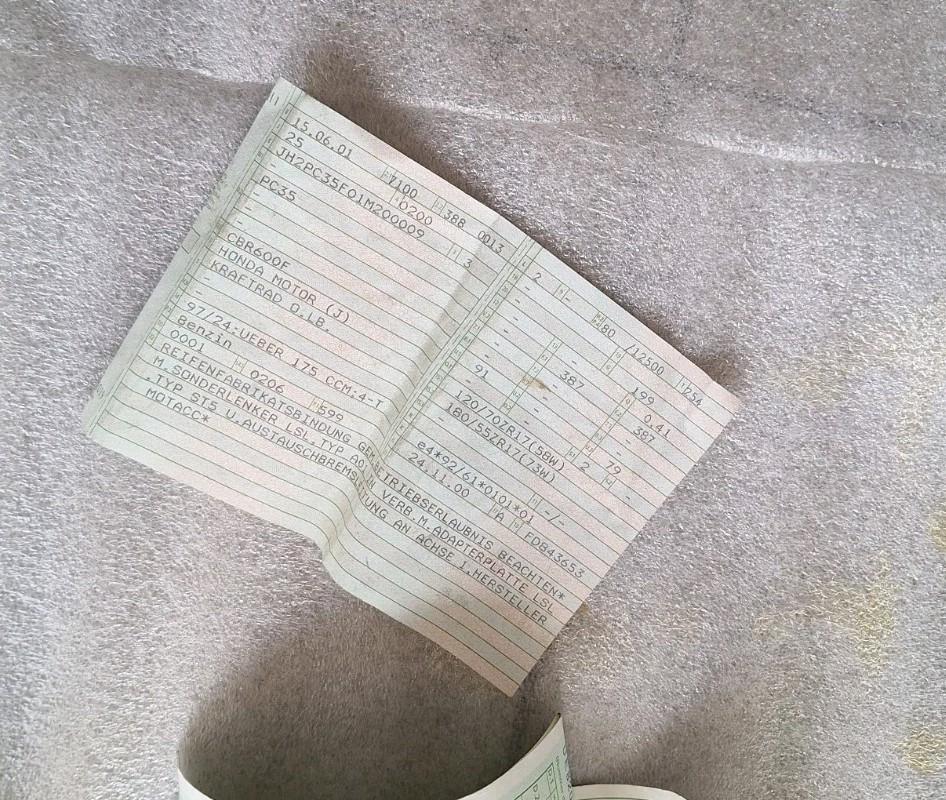 15.06.01 7100 388 0013
25 0200
JH2PC35F01M200009 3
-
PC35
-
-
CBR600F
HONDA MOTOR (J)
KRAFTRAD O.LB.
-
97/24:UEBER 175 CCM;4-T
Benzin
0001 0206 599
2 - 80 /12500 54
-
- - 199
- 387 0.41
- 387
91 - -
- - 79
120/70ZR17(58W) 2 -
180/55ZR17(73W)
e4*92/61*0101*01 -/-
24.11.00 A FD843653
REIFENFABRIKATSBINDUNG GEM.BETRIEBSERLAUBNIS BEACHTEN*
M.SONDERLENKER LSL.TYP A01 IN VERB.M.ADAPTERPLATTE LSL
.TYP ST5 U.AUSTAUSCHBREMSLEITUNG AN ACHSE 1.HERSTELLER
MOTACC*